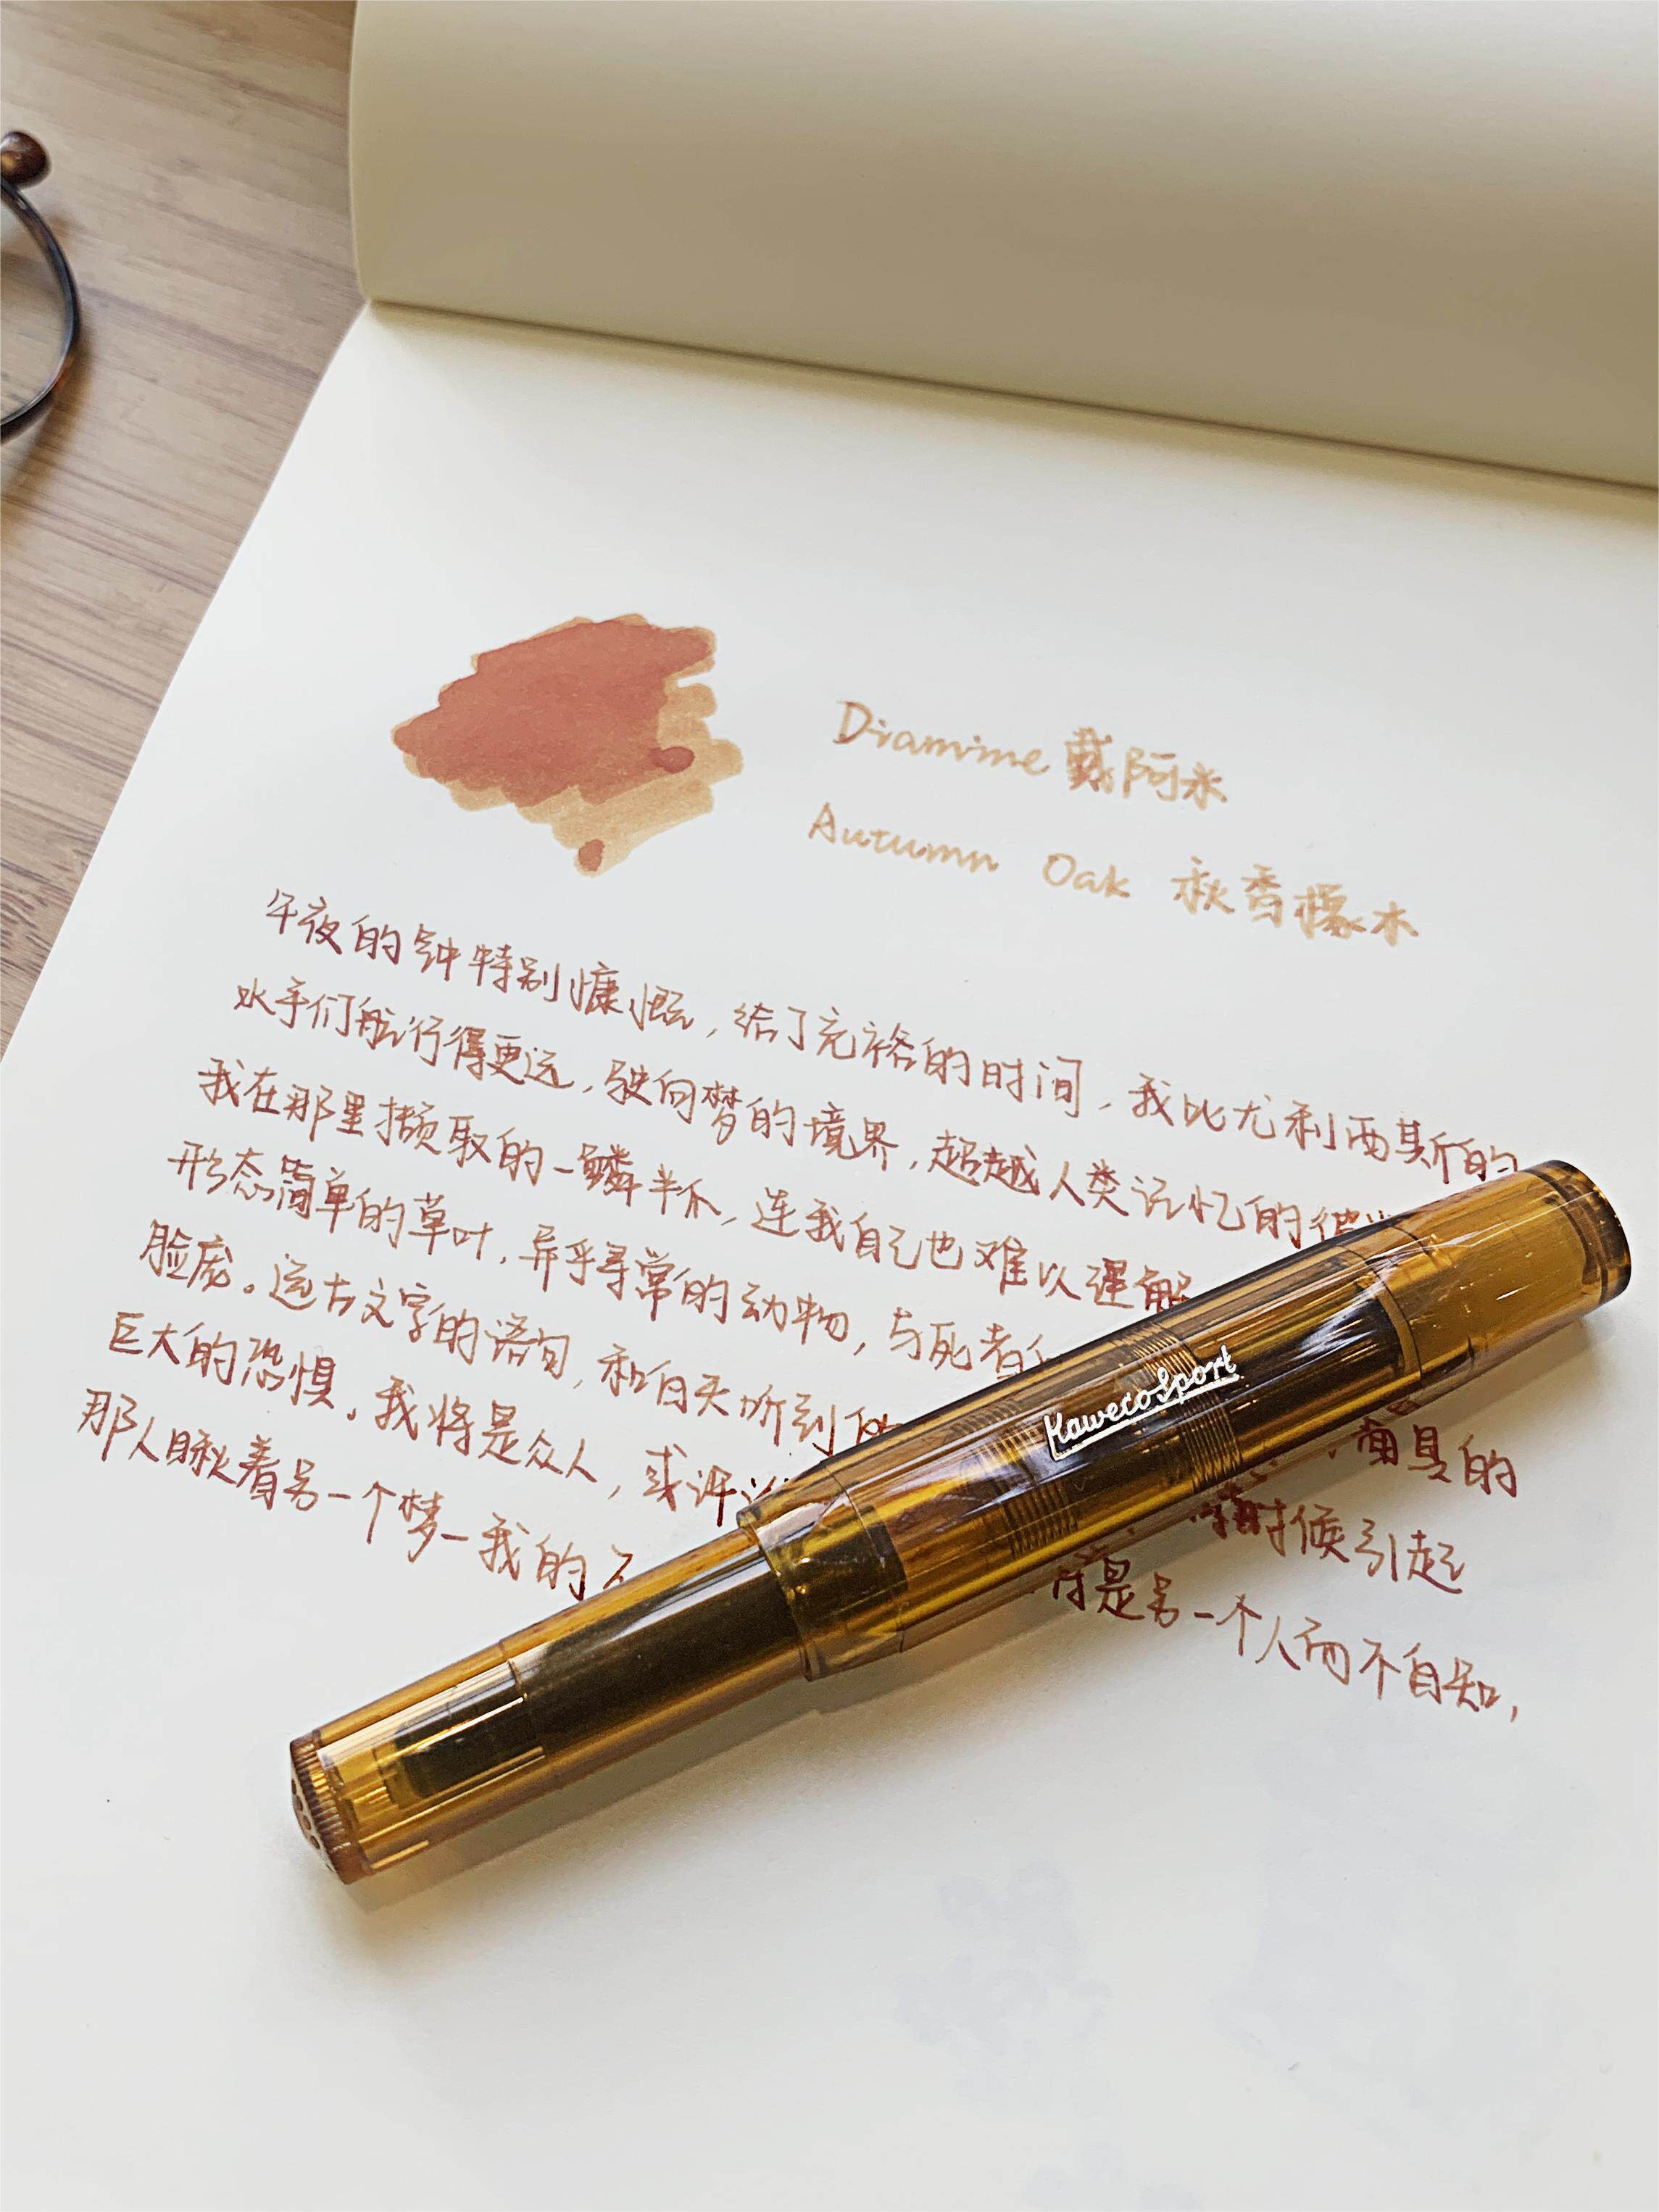 Diamine 戴阿米
Autumn Oak 秋香橡木
午夜的钟特别慷慨，给了充裕的时间，我比尤利西斯的
水手们航行得更远，驶向梦的境界，超越人类记忆的彼
我在那里撷取的一鳞半爪，连我自己也难以理解
形态简单的草叶，异乎寻常的动物，与死者
脸庞。远古文字的语句，和白天听到 面具的
巨大的恐惧。我将是众人，或许 时候引起
那人瞅着另一个梦—我的 是另一个人而不自知，
Kaweco Sport